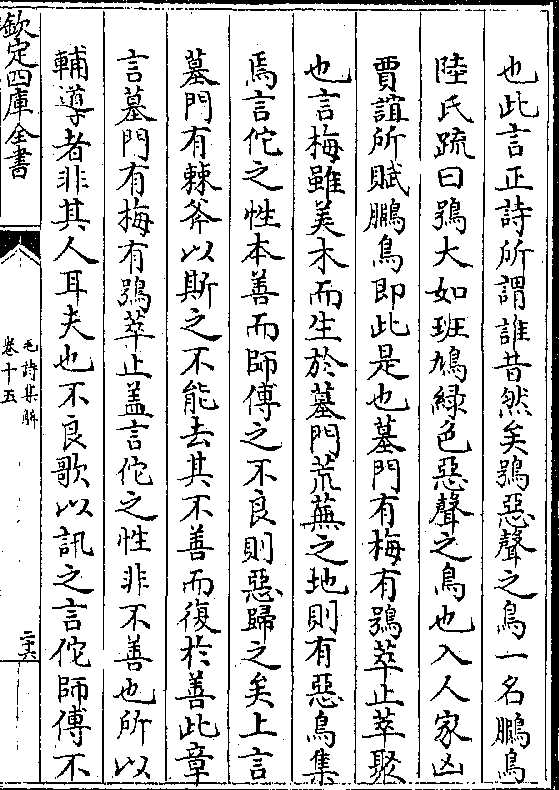 也此言正詩所謂誰昔然矣鴞惡聲之鳥一名鵩鳥
陸氏䟽曰鴞大如班鳩緑色惡聲之鳥也入人家凶
賈誼所賦鵩鳥即此是也墓門有梅有鴞萃止萃聚
也言梅雖美木而生於墓門荒蕪之地則有惡鳥集
焉言佗之性本善而師傅之不良則惡歸之矣上言
墓門有棘斧以斯之不能去其不善而復於善此章
言墓門有梅有鴞萃止盖言佗之性非不善也所以
輔導者非其人耳夫也不良歌以訊之言佗師傅不
欽定四庫全書
毛詩集解
卷十五
二六